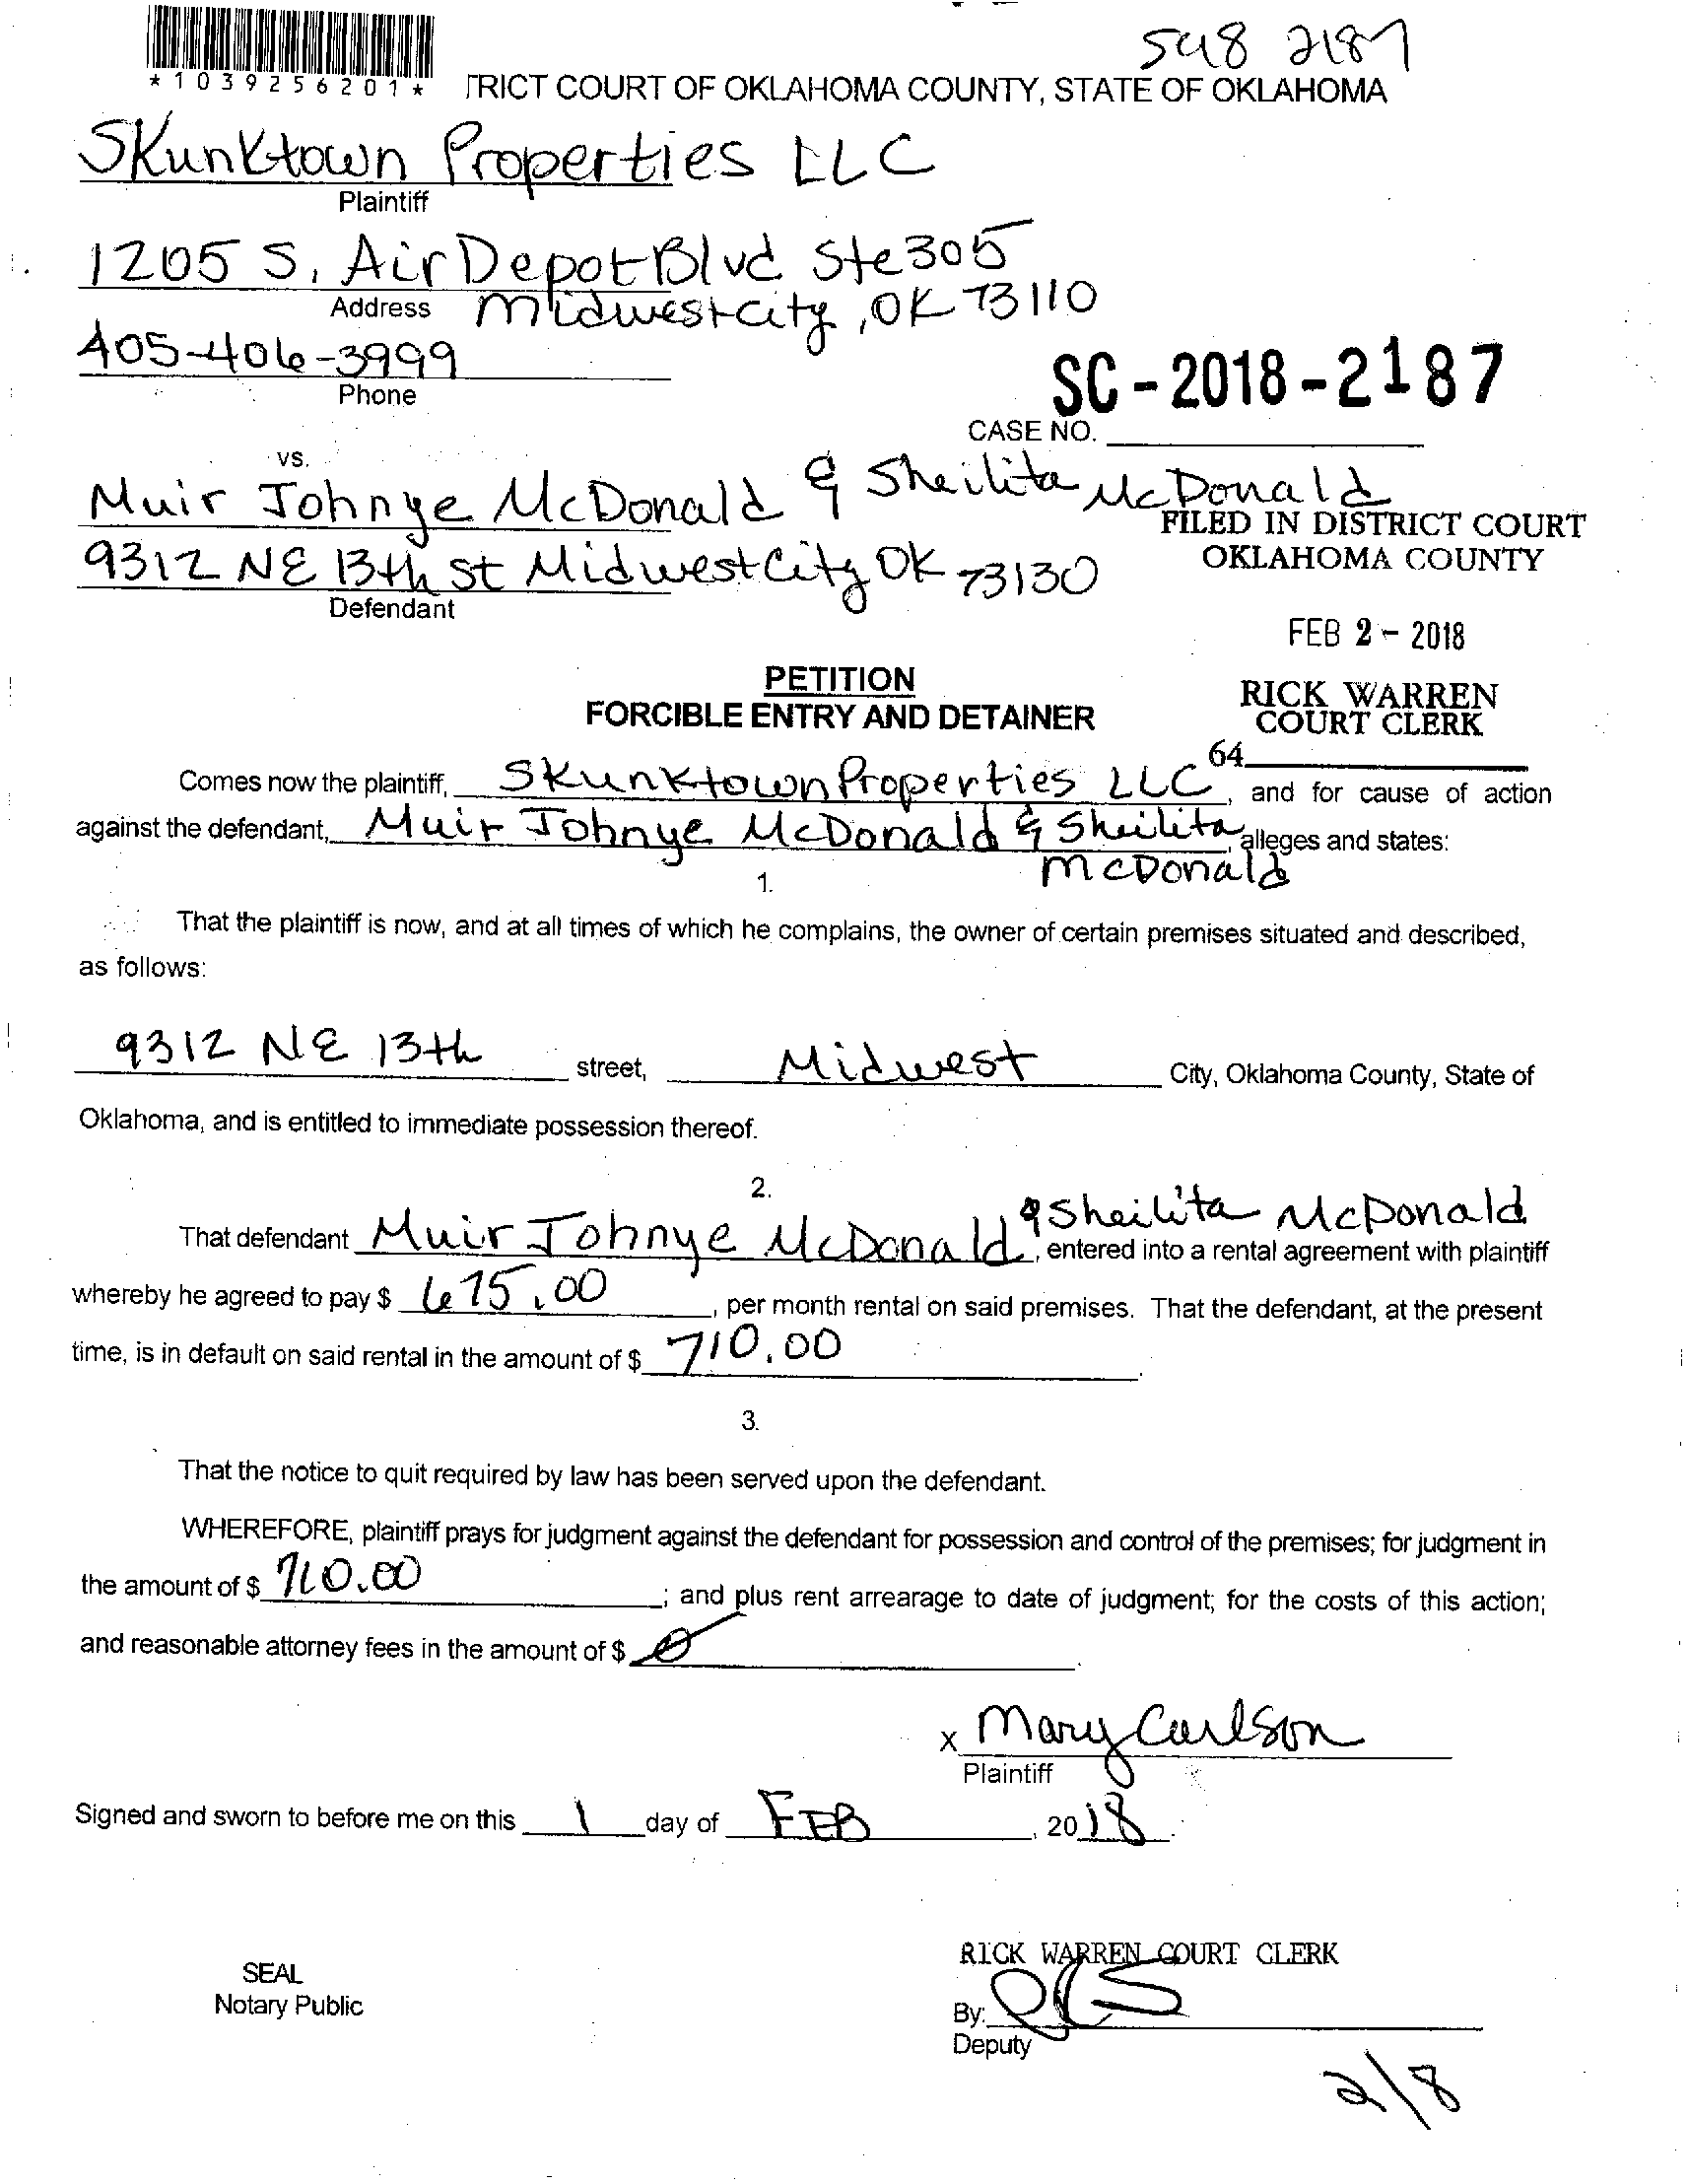 548 2187
*1039256201*
TRICT COURT OF OKLAHOMA COUNTY, STATE OF OKLAHOMA
Skunktown Properties LLC
Plaintiff
1205 S. Air Depot Blvd Ste 305
Address Midwest City, OK 73110
405-406-3999
Phone
SC-2018-2187
CASE NO.
vs.
Muir Johnye McDonald & Sheilita McDonald
FILED IN DISTRICT COURT
9312 NE 13th St Midwest City OK 73130
OKLAHOMA COUNTY
Defendant
FEB 2 - 2018
PETITION
FORCIBLE ENTRY AND DETAINER
RICK WARREN
COURT CLERK
64
Comes now the plaintiff, Skunktown Properties LLC, and for cause of action
against the defendant, Muir Johnye McDonald & Sheilita, alleges and states:
McDonald
1.
That the plaintiff is now, and at all times of which he complains, the owner of certain premises situated and described,
as follows:
9312 NE 13th street, Midwest City, Oklahoma County, State of
Oklahoma, and is entitled to immediate possession thereof.
2.
That defendant Muir Johnye McDonald & Sheilita McDonald, entered into a rental agreement with plaintiff
whereby he agreed to pay $ 675.00, per month rental on said premises. That the defendant, at the present
time, is in default on said rental in the amount of $ 710.00.
3.
That the notice to quit required by law has been served upon the defendant.
WHEREFORE, plaintiff prays for judgment against the defendant for possession and control of the premises; for judgment in
the amount of $ 710.00; and plus rent arrearage to date of judgment; for the costs of this action;
and reasonable attorney fees in the amount of $ 0.
x Mary Carlson
Plaintiff
Signed and sworn to before me on this 1 day of FEB, 2018.
RICK WARREN COURT CLERK
SEAL
Notary Public
By:
Deputy
2/8